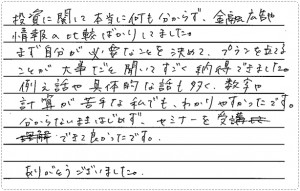 投資に関して本当に何も分からず、金融広告や
情報の比較ばかりしてました。
まず自分が必要なことを決めて、プランを立てる
ことが大事だと聞いてすごく納得できました。
例え話や具体的な話も多く、数字や
計算が苦手な私でも、わかりやすかったです。
分からないままはじめず、セミナーを受講
できて良かったです。
ありがとうございました。